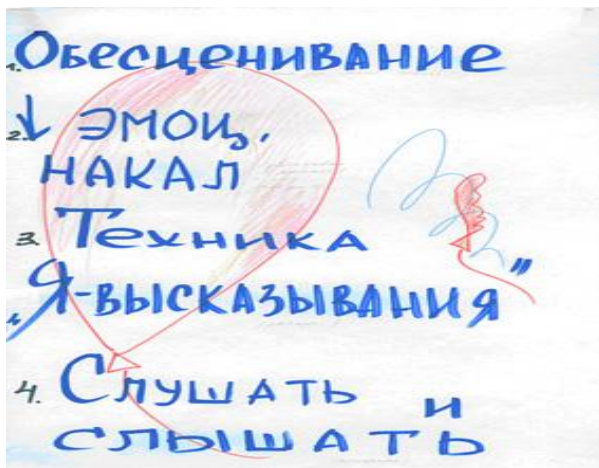 1. Обесценивание
2. ↓ эмоц.
накал
3. Техника
„Я-высказывания"
4. Слушать и
слышать